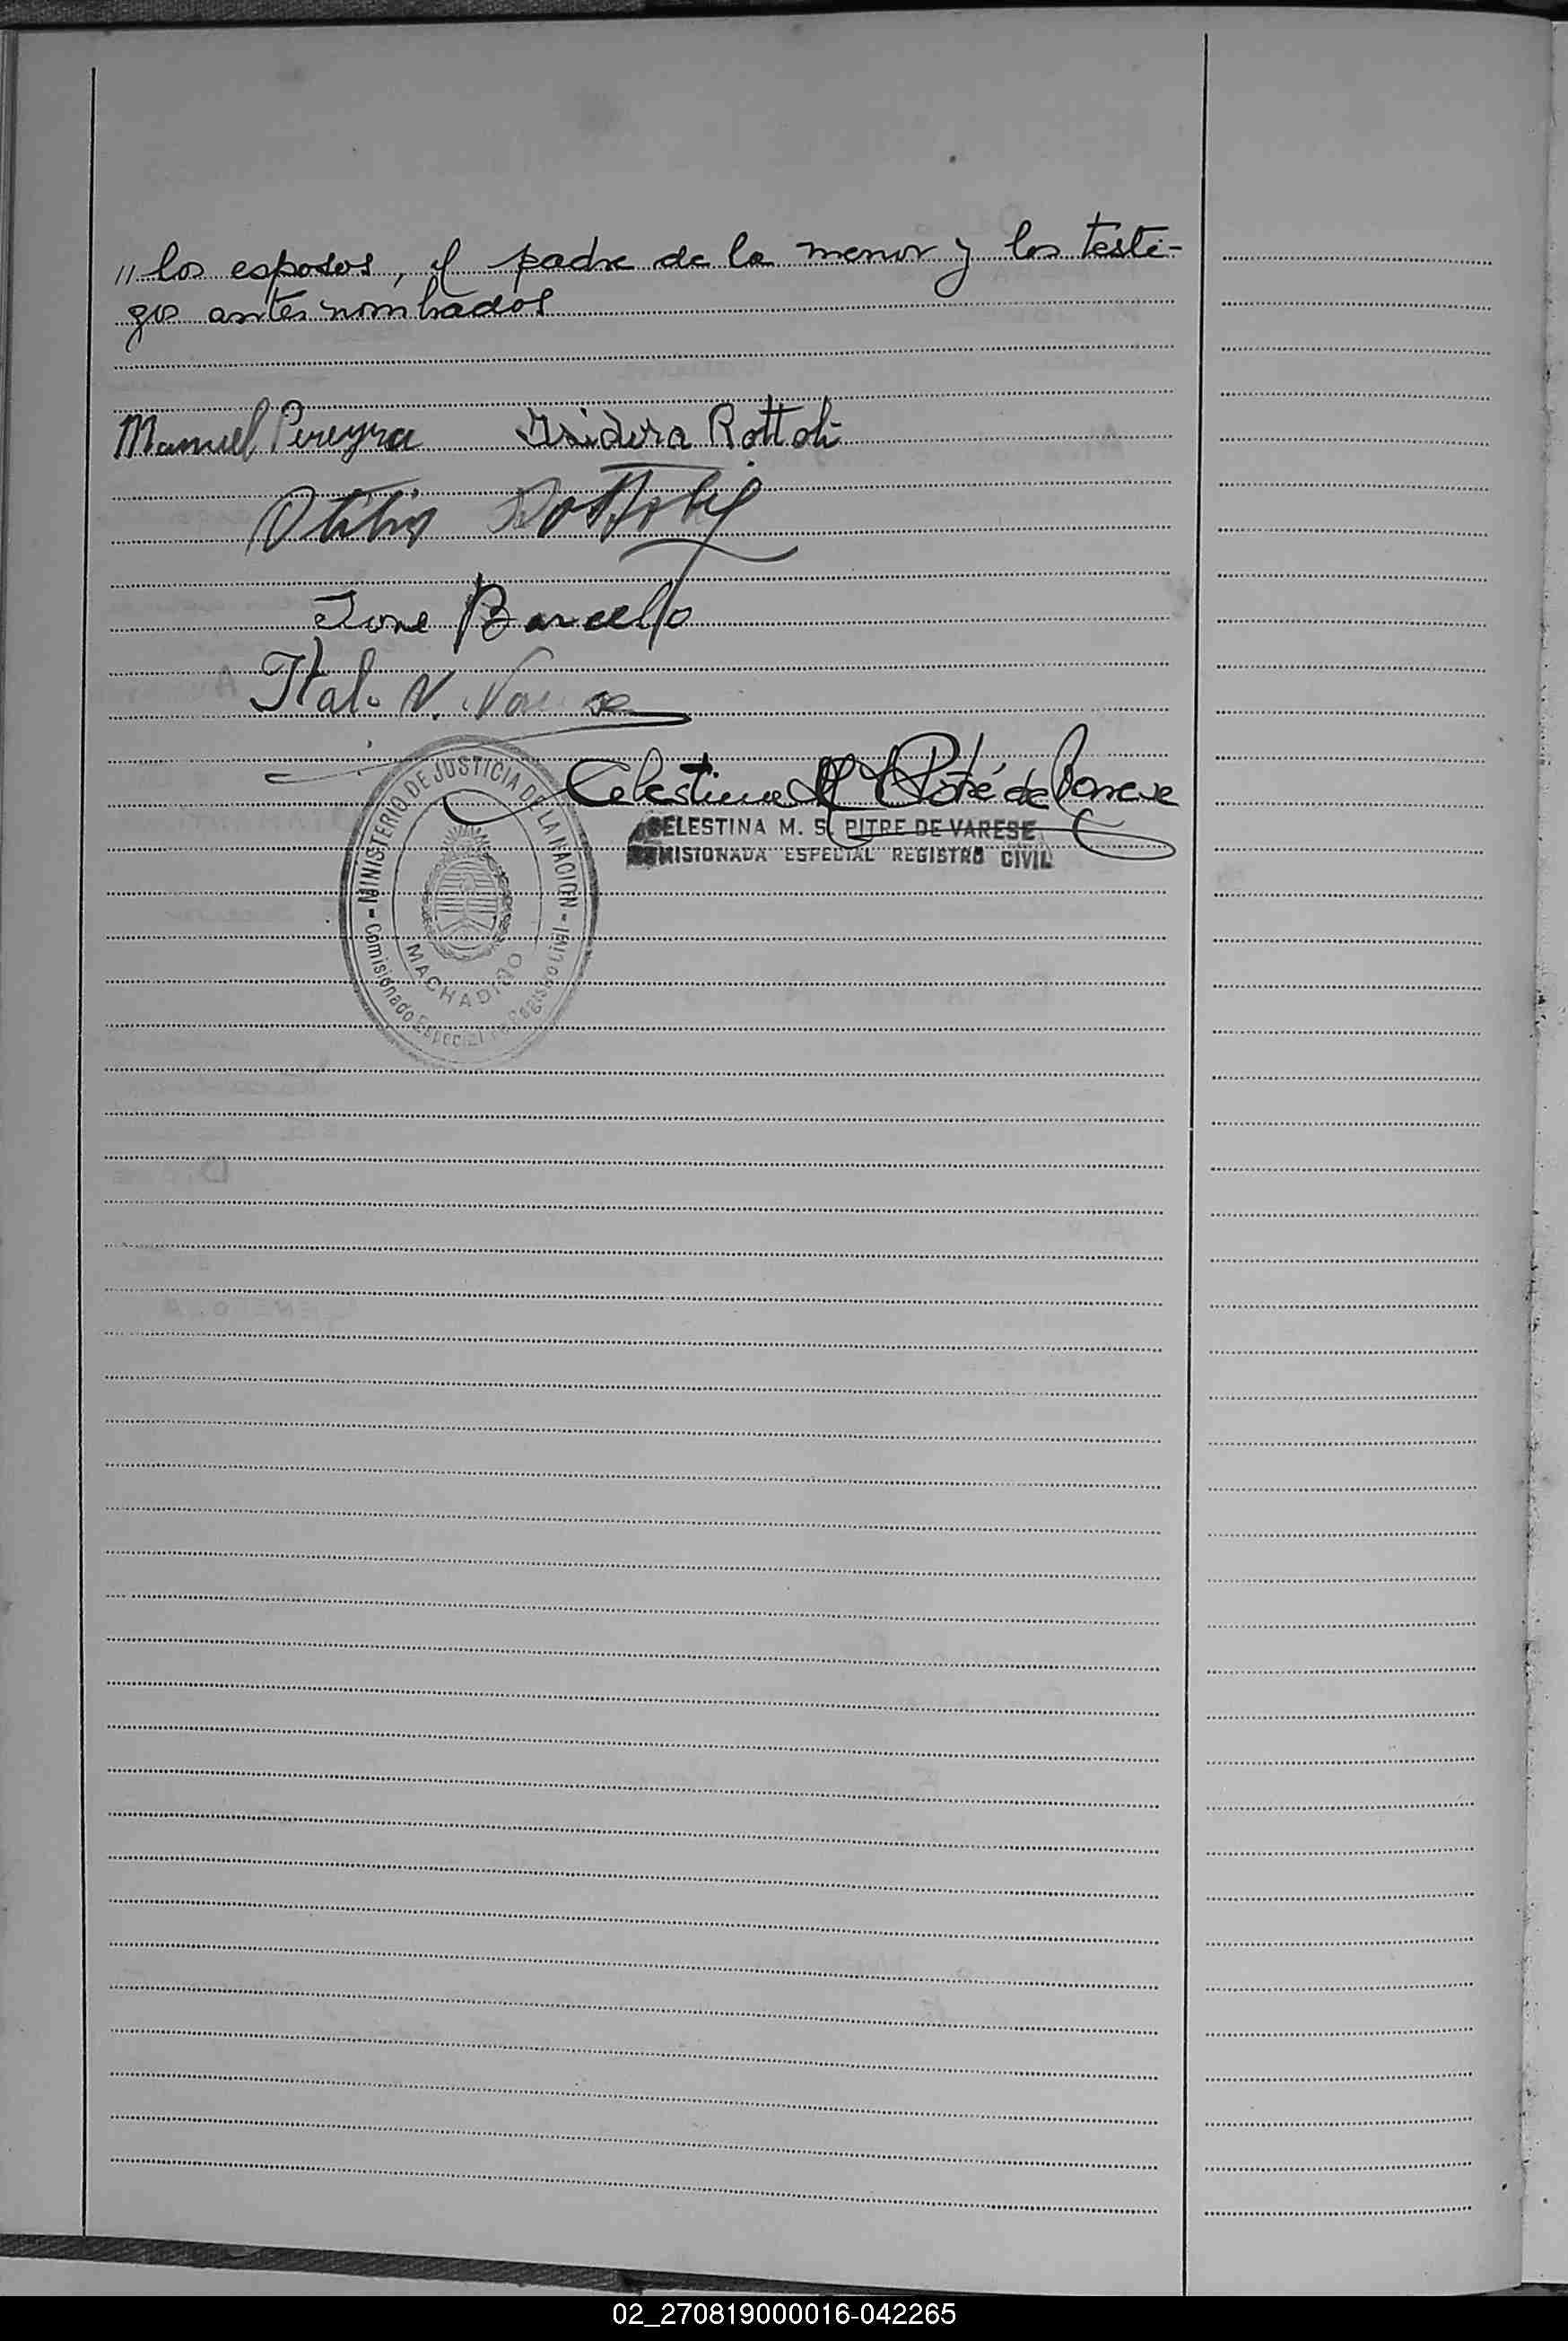 " los esposos, el padre de la menor y los testi-
gos antes nombrados
Manuel Pereyra Isidora Rottoli
Otilio Rottoli
Jose Barcello
Italo V. Varese
Celestina M. S. Pitré de Varese
CELESTINA M. S. PITRE DE VARESE
COMISIONADA ESPECIAL REGISTRO CIVIL
- MINISTERIO DE JUSTICIA DE LA NACION -
MACHADIÑO
Comisionado Especial de Registro Civil
02_270819000016-042265